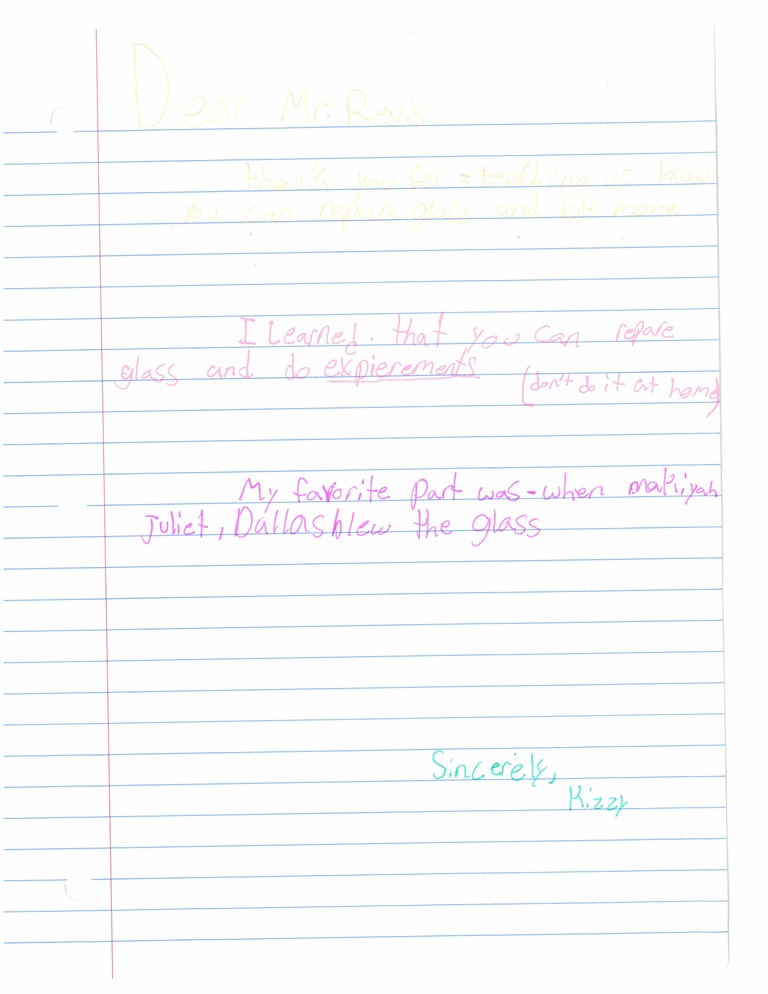 Dear Mr. Revis
thank you for = teaching us how
you can repare glass and lots more
I Learned. that you can repare
glass and do expierements (don't do it at home)
My favorite part was-when makiyah
Juliet, Dallas blew the glass
Sincerely,
Kizzy